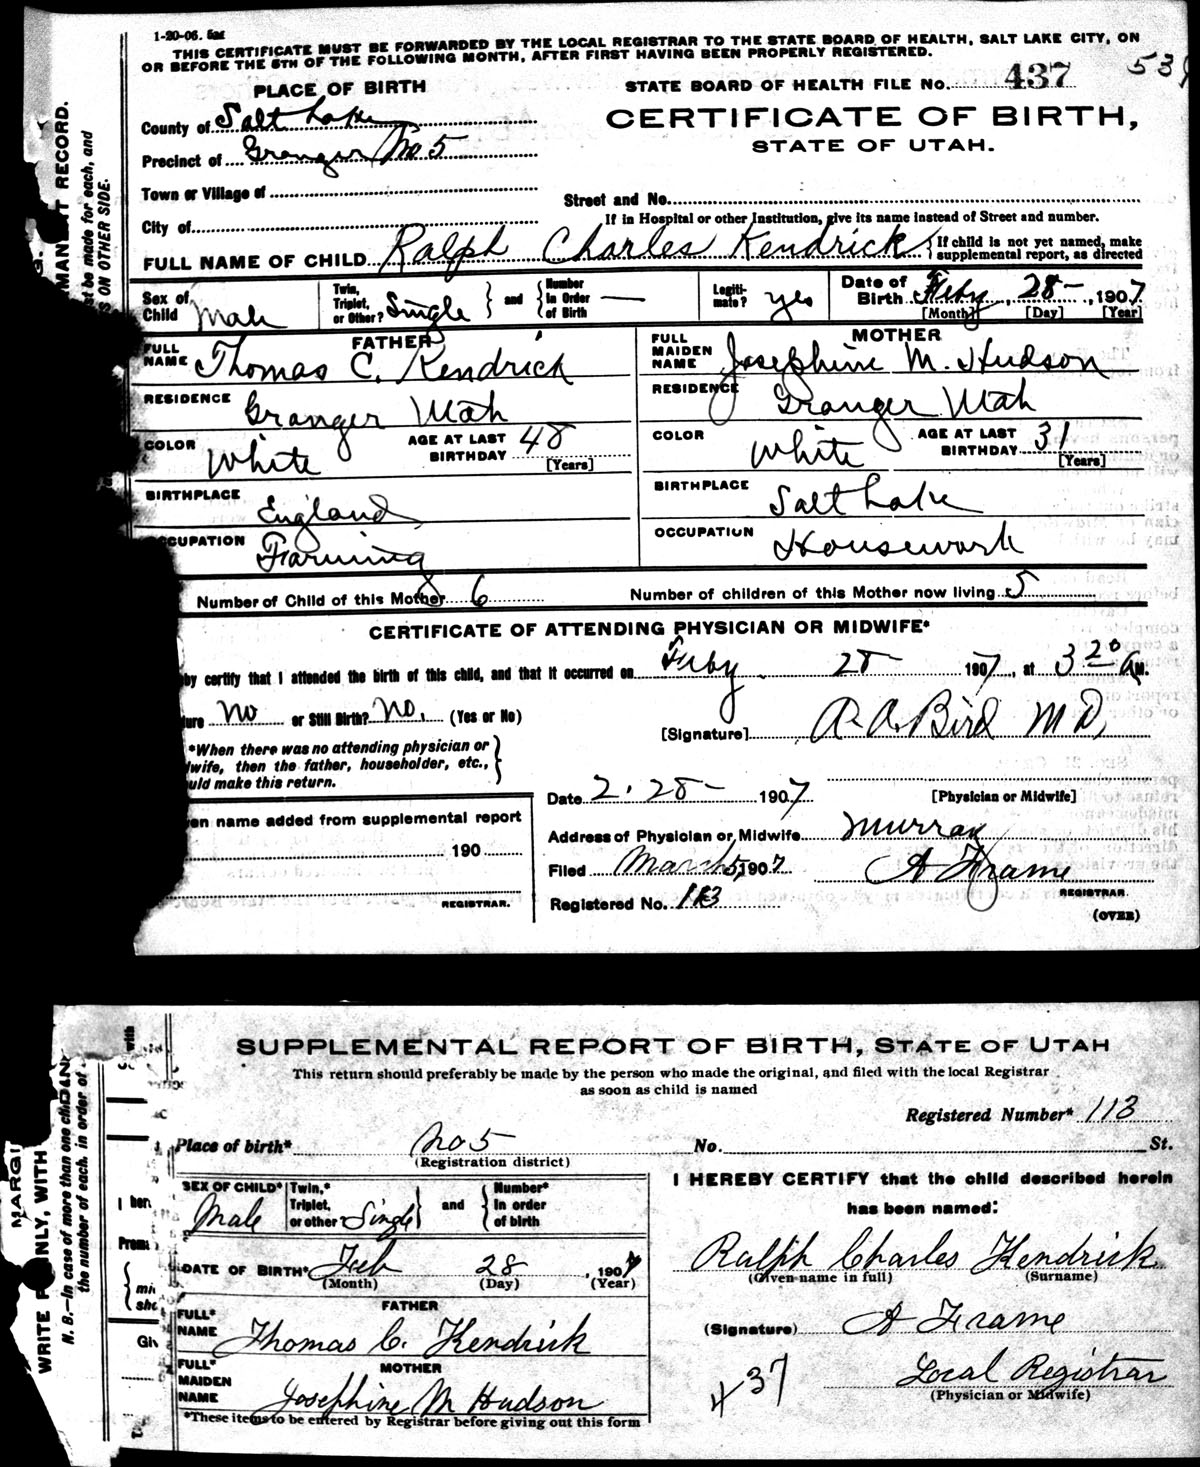 1-20-06. 5M
THIS CERTIFICATE MUST BE FORWARDED BY THE LOCAL REGISTRAR TO THE STATE BOARD OF HEALTH, SALT LAKE CITY, ON
OR BEFORE THE 5TH OF THE FOLLOWING MONTH, AFTER FIRST HAVING BEEN PROPERLY REGISTERED.
53
PLACE OF BIRTH
STATE BOARD OF HEALTH FILE No. 437
County of Salt Lake
CERTIFICATE OF BIRTH,
STATE OF UTAH.
Precinct of Granger No 5
Town or Village of
Street and No.
If in Hospital or other Institution, give its name instead of Street and number.
City of
FULL NAME OF CHILD Ralph Charles Kendrick { If child is not yet named, make supplemental report, as directed
Sex of Child Male
Twin, Triplet, or Other? Single } and { Number in Order of Birth —
Legitimate? yes
Date of Birth Feby 28 - , 1907
[Month] [Day] [Year]
FATHER
FULL NAME Thomas C. Kendrick
MOTHER
FULL MAIDEN NAME Josephine M. Hudson
RESIDENCE Granger Utah
RESIDENCE Granger Utah
COLOR White AGE AT LAST BIRTHDAY 48 [Years]
COLOR White AGE AT LAST BIRTHDAY 31 [Years]
BIRTHPLACE England
BIRTHPLACE Salt Lake
CCUPATION Farming
OCCUPATION Housework
Number of Child of this Mother 6
Number of children of this Mother now living 5
CERTIFICATE OF ATTENDING PHYSICIAN OR MIDWIFE*
by certify that I attended the birth of this child, and that it occurred on Feby 28 1907, at 3 20 a M.
ure No or Still Birth? No. (Yes or No)
[Signature] A. A. Bird M D,
*When there was no attending physician or
wife, then the father, householder, etc., }
uld make this return.
Date 2 . 28 - 1907
[Physician or Midwife]
en name added from supplemental report
Address of Physician or Midwife Murray
190
Filed March 5, 1907
A Frame
REGISTRAR.
REGISTRAR.
Registered No. 113
(OVER)
MANENT RECORD.
st be made for each, and
S ON OTHER SIDE.
SUPPLEMENTAL REPORT OF BIRTH, STATE OF UTAH
This return should preferably be made by the person who made the original, and filed with the local Registrar
as soon as child is named
Registered Number* 113
Place of birth* No 5 No. St.
(Registration district)
SEX OF CHILD* Male
Twin,* Triplet, or other Single } and { Number* in order of birth
I HEREBY CERTIFY that the child described herein
has been named:
Ralph Charles Kendrick
(Given name in full) (Surname)
DATE OF BIRTH* Feb 28 , 1907
(Month) (Day) (Year)
FATHER
FULL* NAME Thomas C. Kendrick
(Signature) A Frame
MOTHER
FULL* MAIDEN NAME Josephine M Hudson
437
Local Registrar
(Physician or Midwife)
*These items to be entered by Registrar before giving out this form
MARGI
WRITE P NLY, WITH
N. B.—In case of more than one child
the number of each, in order of